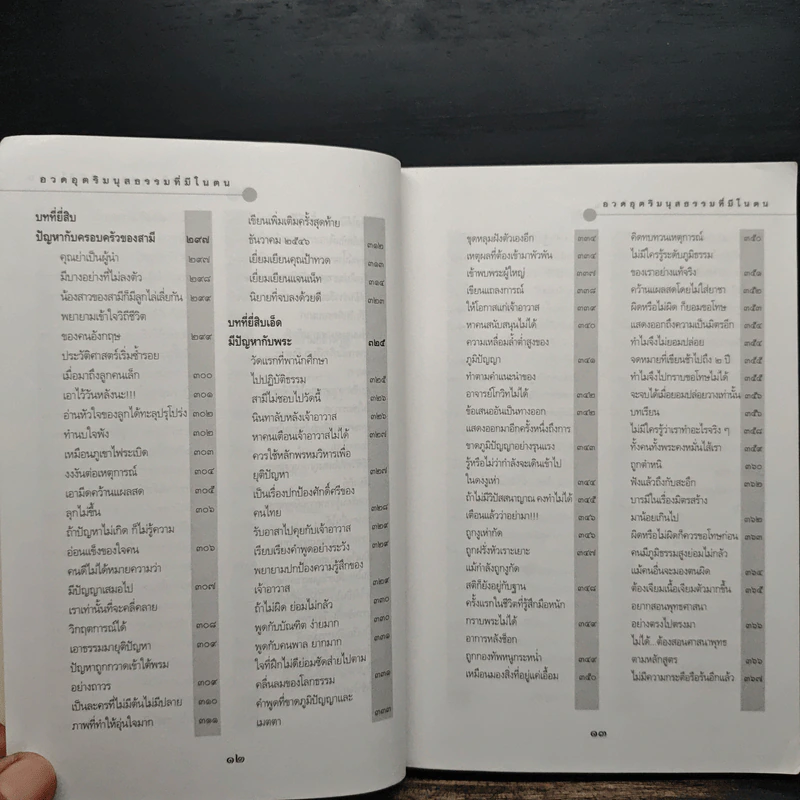 อวดอุตริมนุสธรรมที่มีในตน
บทที่ยี่สิบ
ปัญหากับครอบครัวของสามี ๒๙๗
คุณย่าเป็นผู้นำ ๒๙๗
มีบางอย่างที่ไม่ลงตัว ๒๙๘
น้องสาวของสามีก็มีลูกไล่เลี่ยกัน ๒๙๙
พยายามเข้าใจวิถีชีวิต
ของคนอังกฤษ ๒๙๙
ประวัติศาสตร์เริ่มซ้ำรอย
เมื่อมาถึงลูกคนเล็ก ๓๐๐
เอาไว้วันหลังนะ!!! ๓๐๑
อ่านหัวใจของลูกได้ทะลุปรุโปร่ง ๓๐๒
ทำนบใจพัง ๓๐๒
เหมือนภูเขาไฟระเบิด ๓๐๓
งงงันต่อเหตุการณ์ ๓๐๔
เอามีดคว้านแผลสด ๓๐๕
ลุกไม่ขึ้น ๓๐๖
ถ้าปัญหาไม่เกิด ก็ไม่รู้ความ
อ่อนแข็งของใจคน ๓๐๖
คนดีไม่ได้หมายความว่า
มีปัญญาเสมอไป ๓๐๗
เราเท่านั้นที่จะคลี่คลาย
วิกฤตการณ์ได้ ๓๐๘
เอาธรรมมายุติปัญหา ๓๐๙
ปัญหาถูกกวาดเข้าใต้พรม
อย่างถาวร ๓๐๙
เป็นละครที่ไม่มีต้นไม่มีปลาย ๓๑๐
ภาพที่ทำให้อุ่นใจมาก ๓๑๑
เขียนเพิ่มเติมครั้งสุดท้าย
ธันวาคม ๒๕๔๖ ๓๑๒
เยี่ยมเยียนคุณป้าทวด ๓๑๓
เยี่ยมเยียนแจนเน็ท ๓๑๔
นิยายที่จบลงด้วยดี ๓๒๓
บทที่ยี่สิบเอ็ด
มีปัญหากับพระ ๓๒๕
วัดแรกที่พานักศึกษา
ไปปฏิบัติธรรม ๓๒๕
สามีไม่ชอบไปวัดนี้ ๓๒๖
นินทาลับหลังเจ้าอาวาส ๓๒๖
หาคนเตือนเจ้าอาวาสไม่ได้ ๓๒๗
ควรใช้หลักพรหมวิหารเพื่อ
ยุติปัญหา ๓๒๗
เป็นเรื่องปกป้องศักดิ์ศรีของ
คนไทย ๓๒๘
รับอาสาไปคุยกับเจ้าอาวาส ๓๒๙
เรียบเรียงคำพูดอย่างระวัง ๓๒๙
พยายามปกป้องความรู้สึกของ
เจ้าอาวาส ๓๒๙
ถ้าไม่ผิด ย่อมไม่กลัว ๓๓๐
พูดกับบัณฑิต ง่ายมาก ๓๓๐
พูดกับคนพาล ยากมาก ๓๓๑
ใจที่ฝึกไม่ดีย่อมซัดส่ายไปตาม
คลื่นลมของโลกธรรม ๓๓๑
คำพูดที่ขาดภูมิปัญญาและ
เมตตา ๓๓๓
๑๒
อวดอุตริมนุสธรรมที่มีในตน
ขุดหลุมฝังตัวเองอีก ๓๓๔
เหตุผลที่ต้องเข้ามาพัวพัน ๓๓๔
เข้าพบพระผู้ใหญ่ ๓๓๗
เขียนแถลงการณ์ ๓๓๘
ให้โอกาสแก่เจ้าอาวาส ๓๓๙
หาคนสนับสนุนไม่ได้ ๓๔๐
ความเหลื่อมล้ำต่ำสูงของ
ภูมิปัญญา ๓๔๑
ทำตามคำแนะนำของ
อาจารย์โกวิทไม่ได้ ๓๔๒
ข้อเสนออันเป็นทางออก ๓๔๒
แสดงออกมาอีกครั้งหนึ่งถึงการ
ขาดภูมิปัญญาอย่างรุนแรง ๓๔๓
รู้หรือไม่ว่ากำลังจะเดินเข้าไป
ในดงงูเห่า ๓๔๔
ถ้าไม่มีวิปัสสนาญาณ คงทำไม่ได้ ๓๔๕
เตือนแล้วว่าอย่ามา!!! ๓๔๖
ถูกงูเห่ากัด ๓๔๖
ถูกฝรั่งหัวเราะเยาะ ๓๔๗
แม้กำลังถูกงูกัด
สติก็ยังอยู่กับฐาน ๓๔๘
ครั้งแรกในชีวิตที่รู้สึกมือหนัก
กราบพระไม่ได้
อาการหลังช็อก
ถูกกองทัพหนูกระหน่ำ ๓๔๙
เหมือนมองสิ่งที่อยู่แค่เอื้อม ๓๕๐
คิดทบทวนเหตุการณ์ ๓๕๐
ไม่มีใครรู้ระดับภูมิธรรม
ของเราอย่างแท้จริง ๓๕๑
คว้านแผลสดโดยไม่ใส่ยาชา ๓๕๒
ผิดหรือไม่ผิด ก็ยอมขอโทษ ๓๕๓
แสดงออกถึงความเป็นมิตรอีก ๓๕๔
ทำไมจึงไม่ยอมปล่อย ๓๕๕
จดหมายที่เขียนช้าไปถึง ๒ ปี ๓๕๕
ทำไมจึงไปกราบขอโทษไม่ได้ ๓๕๕
จะจบได้เมื่อยอมปล่อยวางเท่านั้น ๓๕๖
บทเรียน ๓๕๖
ไม่มีใครรู้ว่าเราทำอะไรจริง ๆ ๓๕๘
ทั้งคนทั้งพระคงหมั่นไส้เรา ๓๕๙
ถูกตำหนิ ๓๖๐
ฟังแล้วถึงกับสะอึก ๓๖๒
บารมีในเรื่องมิตรสร้าง
มาน้อยเกินไป ๓๖๒
ผิดหรือไม่ผิดก็ควรขอโทษก่อน ๓๖๓
คนมีภูมิธรรมสูงย่อมไม่กลัว
แม้คนอื่นจะมองตนผิด ๓๖๔
ต้องเจียมเนื้อเจียมตัวมากก่อน ๓๖๕
อยากสอนพุทธศาสนา
อย่างตรงไปตรงมา ๓๖๖
ไม่ได้...ต้องสอนศาสนาพุทธ
ตามหลักสูตร ๓๖๖
ไม่มีความกระตือรือร้นอีกแล้ว ๓๖๗
๑๓